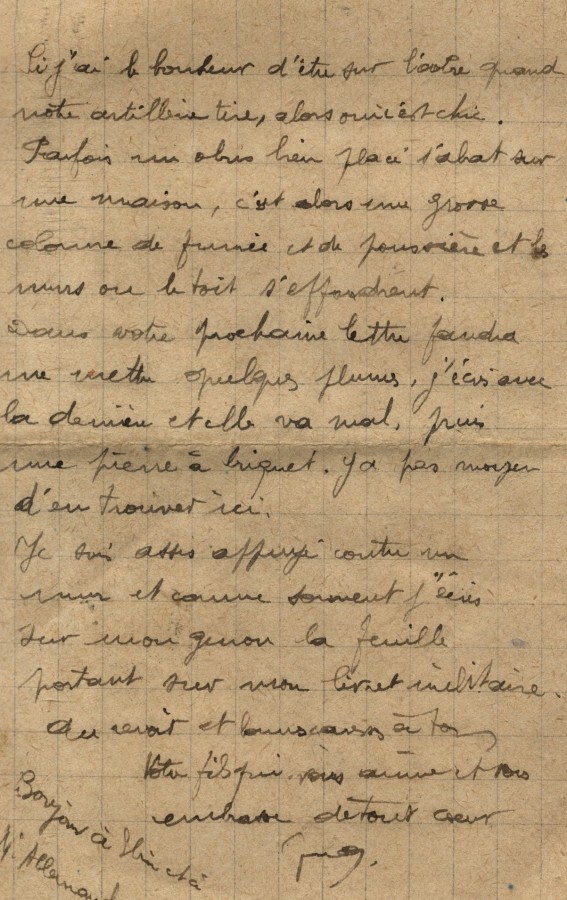 Si j'ai le bonheur d'être sur l'autre quand
notre artillerie tire, alors oui c'est chic.
Parfois un obus bien placé s'abat sur
une maison, c'est alors une grosse
colonne de fumée et de poussière et les
murs ou le toit s'effondrent.
Dans votre prochaine lettre faudra
me mettre quelques plumes, j'écris avec
la dernière et elle va mal, puis
une pierre à briquet. Ya pas moyen
d'en trouver ici.
Je suis assis appuyé contre un
mur et comme souvent j'écris
sur mon genou la feuille
portant sur mon livret militaire.
Au revoir et bonnes caresses à tous
Votre fils qui vous aime et vous
embrasse de tout coeur
Bonjour à et à
Allemand